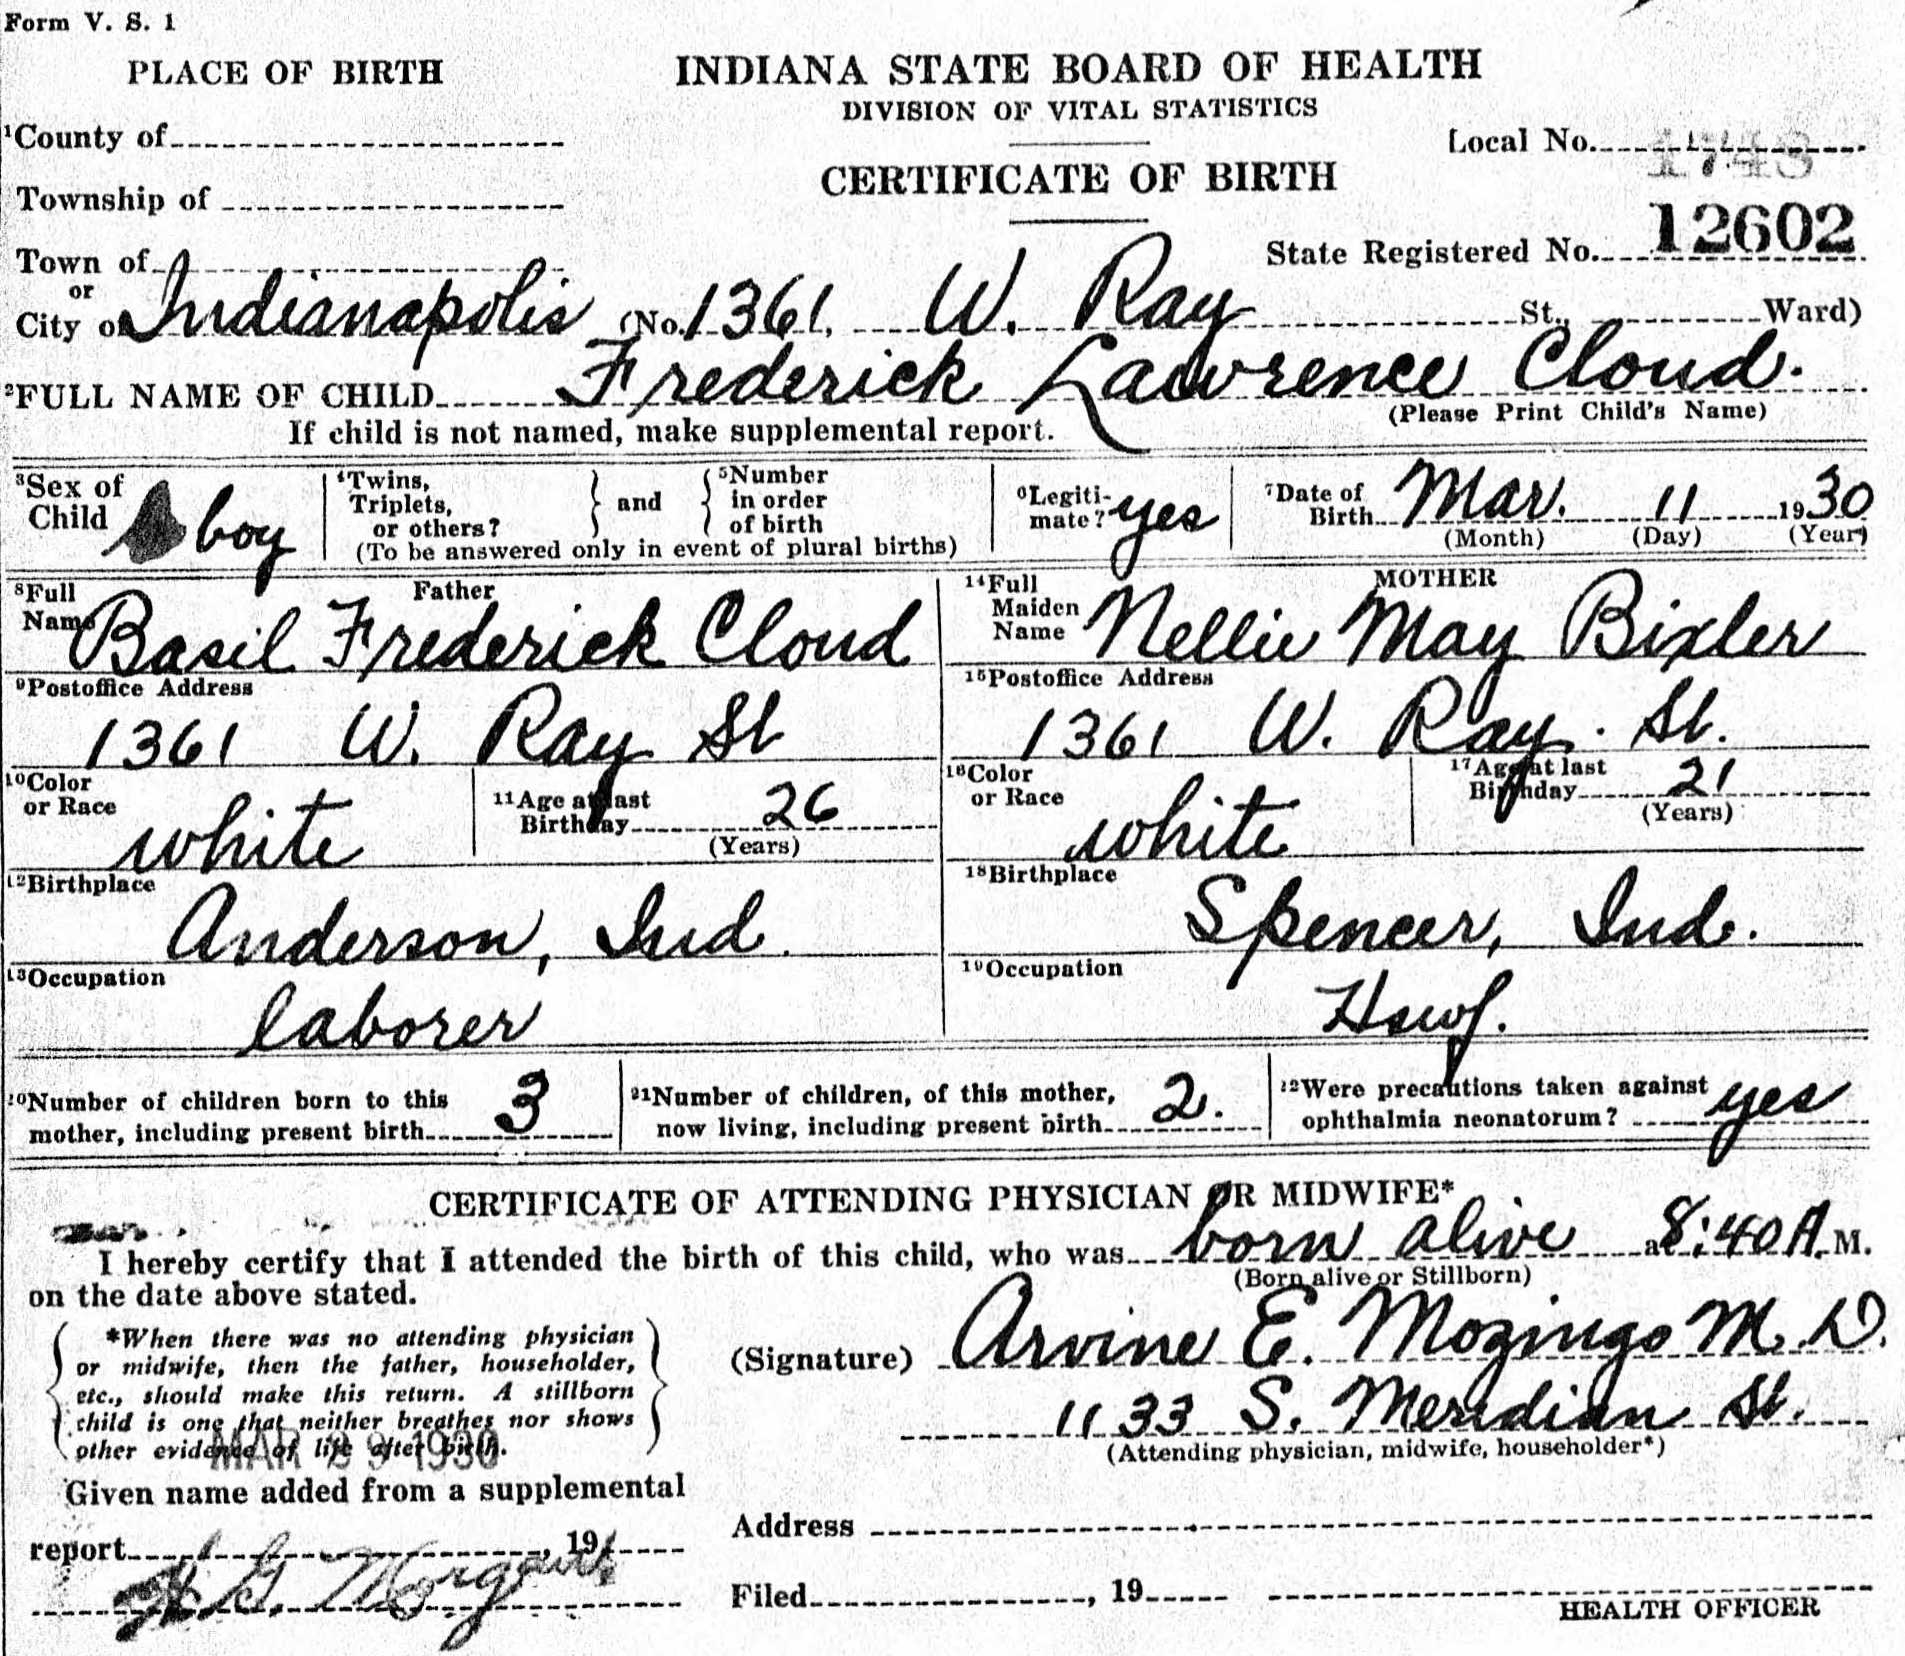 Form V. S. 1
PLACE OF BIRTH
INDIANA STATE BOARD OF HEALTH
DIVISION OF VITAL STATISTICS
1County of
Local No. 1743
CERTIFICATE OF BIRTH
Township of
State Registered No. 12602
Town of
or
City of Indianapolis (No. 1361 W. Ray St., Ward)
2FULL NAME OF CHILD Frederick Lawrence Cloud.
(Please Print Child's Name)
If child is not named, make supplemental report.
3Sex of Child boy
4Twins, Triplets, or others? } and { 5Number in order of birth
(To be answered only in event of plural births)
6Legitimate? yes
7Date of Birth Mar. 11 1930
(Month) (Day) (Year)
Father
8Full Name Basil Frederick Cloud
MOTHER
14Full Maiden Name Nellie May Bixler
9Postoffice Address
1361 W. Ray St
15Postoffice Address
1361 W. Ray. St.
10Color or Race white
11Age at last Birthday 26
(Years)
16Color or Race white
17Age at last Birthday 21
(Years)
12Birthplace
Anderson, Ind.
18Birthplace
Spencer, Ind.
13Occupation
laborer
19Occupation
Hswf.
20Number of children born to this mother, including present birth 3
21Number of children, of this mother, now living, including present birth 2.
22Were precautions taken against ophthalmia neonatorum? yes
CERTIFICATE OF ATTENDING PHYSICIAN OR MIDWIFE*
I hereby certify that I attended the birth of this child, who was born alive at 8:40 A. M.
(Born alive or Stillborn)
on the date above stated.
*When there was no attending physician
or midwife, then the father, householder,
etc., should make this return. A stillborn
child is one that neither breathes nor shows
other evidence of life after birth.
MAR 29 1930
(Signature) Arvine E. Mozingo M. D.
1133 S. Meridian St.
(Attending physician, midwife, householder*)
Given name added from a supplemental
report , 19
H. G. Morgan
Address
Filed , 19
HEALTH OFFICER